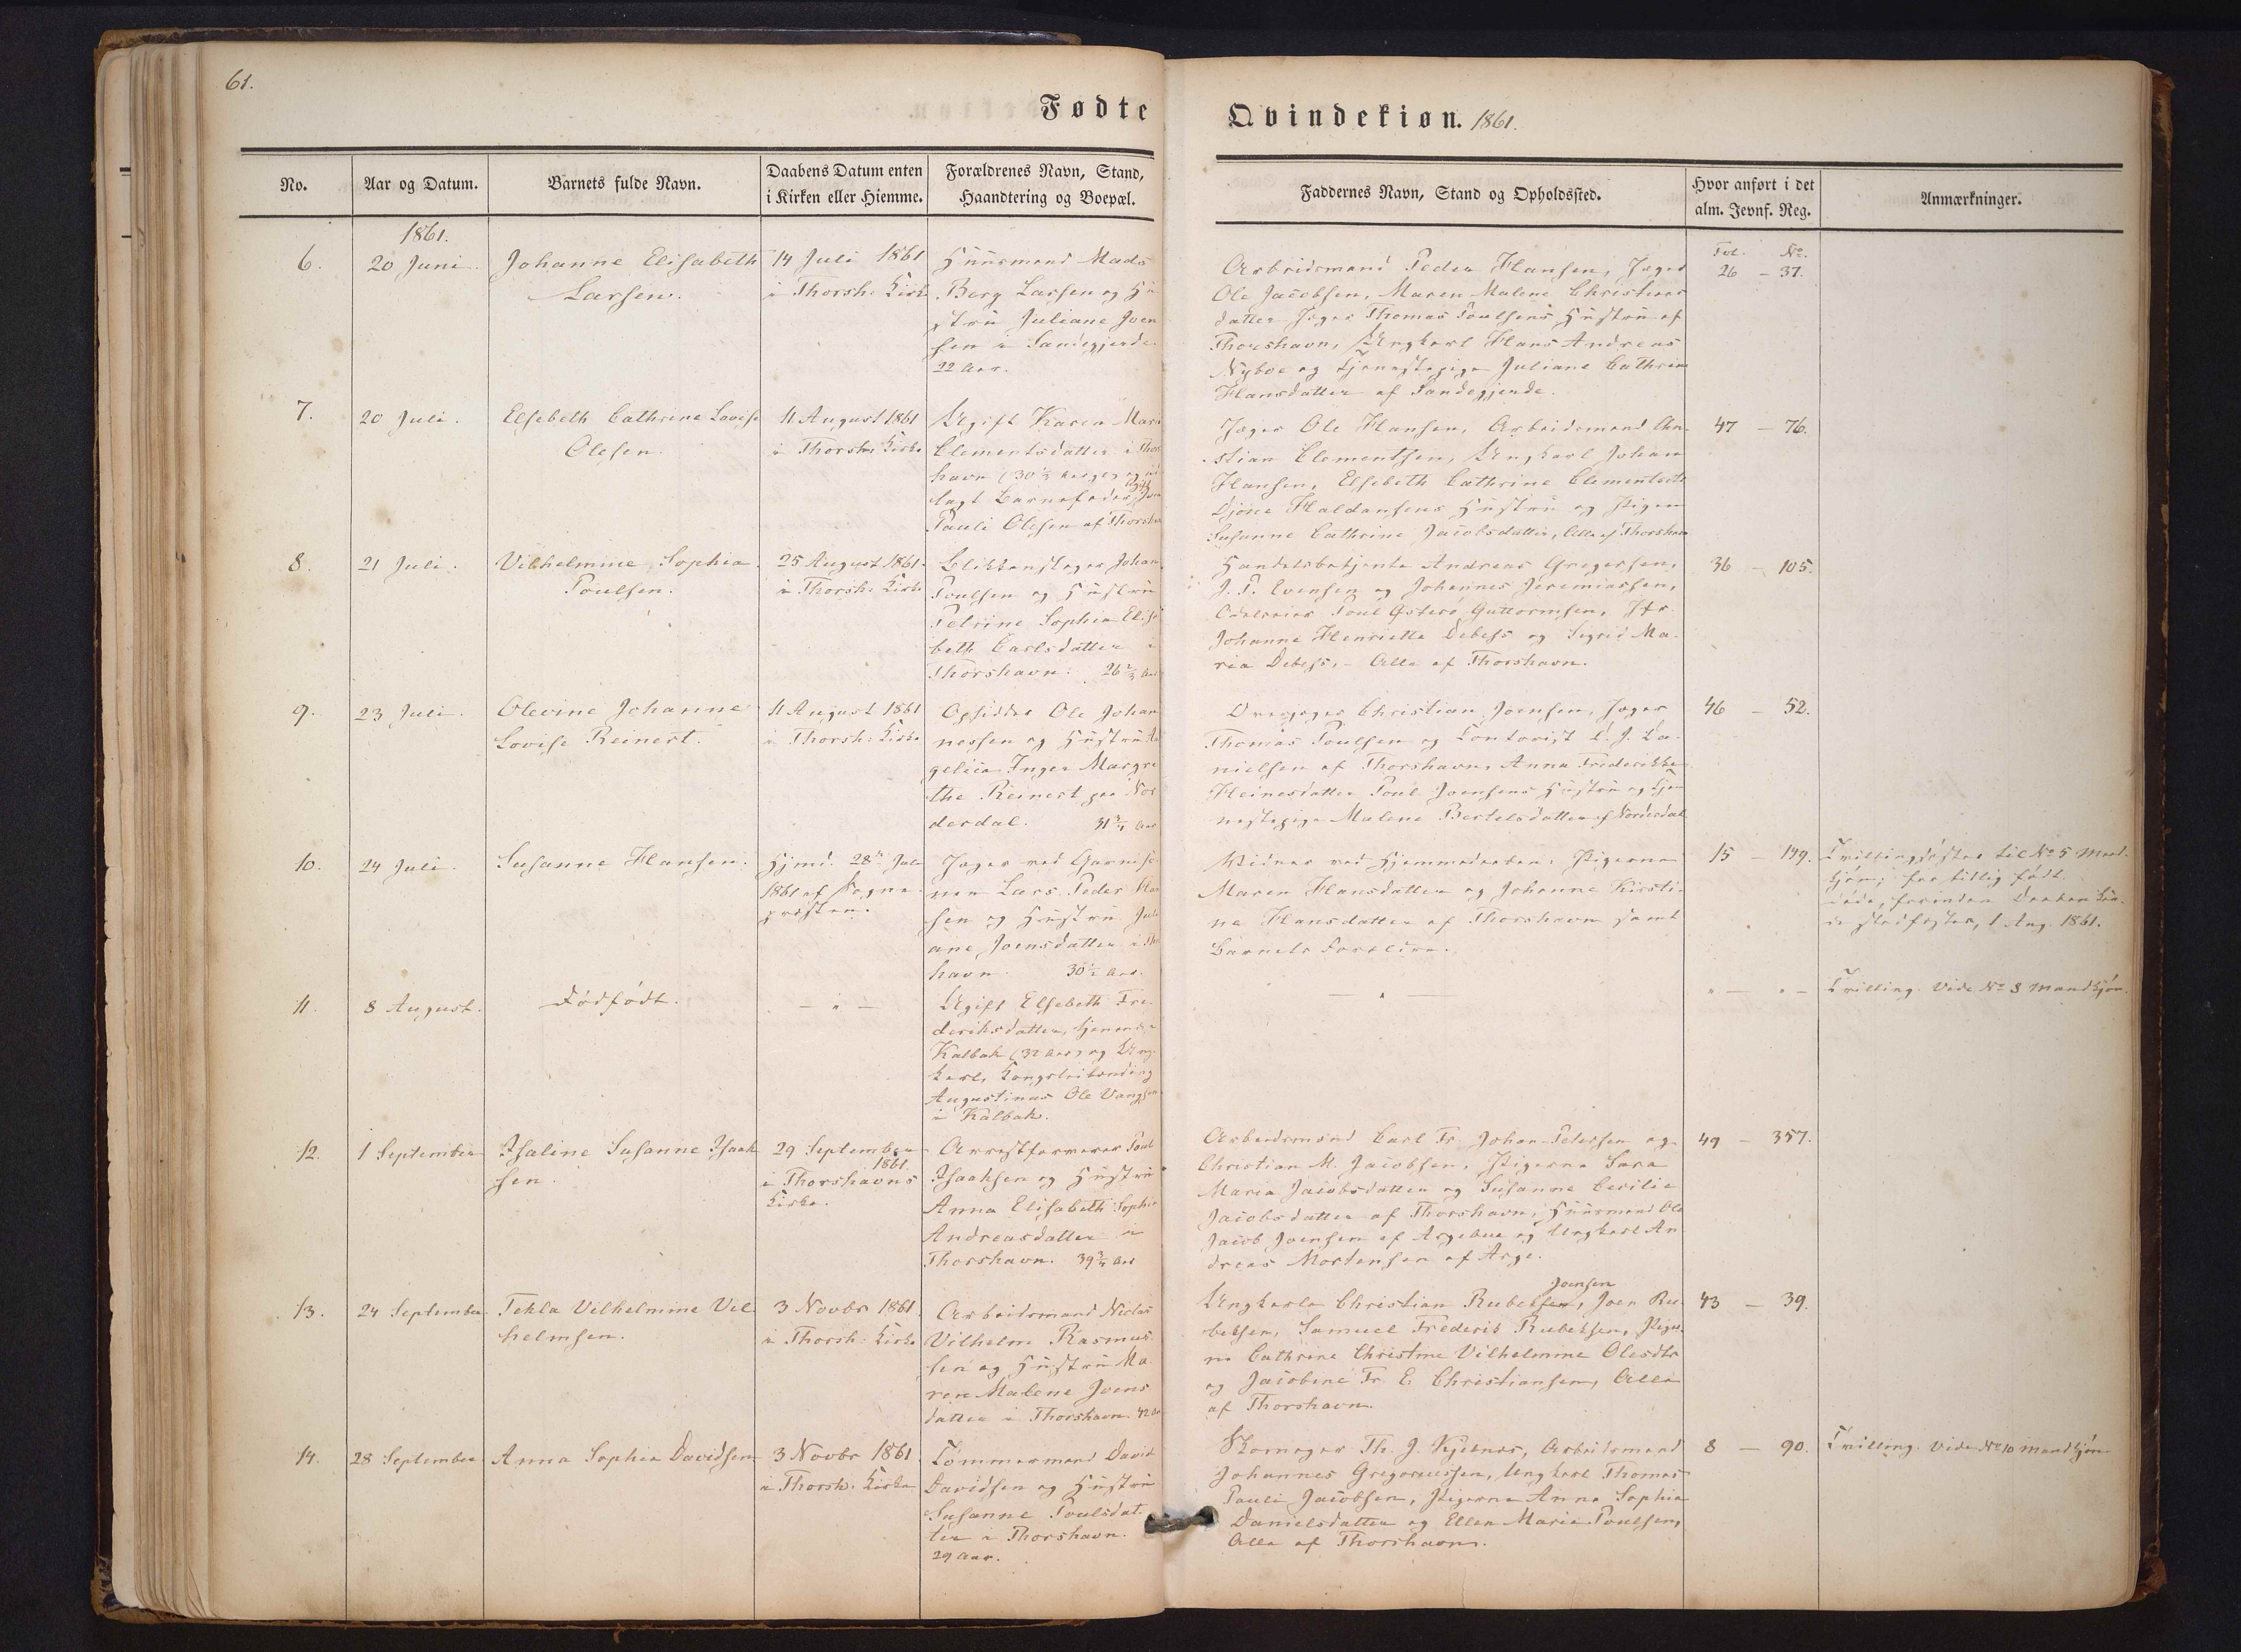 61.
Fødte
Qvindekiøn. 1861.
No.
Aar og Datum.
Barnets fulde Navn.
Daabens Datum enten
i Kirken eller Hiemme.
Forældrenes Navn, Stand,
Haandtering og Boepæl.
Faddernes Navn, Stand og Opholdssted.
Hvor anført i det
alm. Jevnf. Reg.
Anmærkninger.
1861.
6.
20 Juni.
Johanne Elisabeth
Larsen.
14 Juli 1861
i Thorsh. Kirke
Huusmand Mads
Berg Larsen og Hu
stru Juliane Joen
sen i Sandegjerde.
22 Aar.
Arbeidsmand Peder Hansen, Jæger
Ole Jacobsen, Maren Malene Christians
datter Jæger Thomas Poulsens Hustru af
Thorshavn, Ungkarl Hans Andreas
Nyboe og Tjenestepige Juliane Cathrine
Hansdatter af Sandegjerde.
Fol. No.
26 – 37.
7.
20 Juli.
Elsebeth Cathrine Lovise
Olesen.
11 August 1861
i Thorsh. Kirke
Ugift Karen Marie
Clementsdatter i Thors
havn (30½ Aar) og ud
lagt Barnefader, Joen
Pauli Olesen af Thorshavn
Jæger Ole Hansen, Arbeidsmand Chri
stian Clementsen, Ungkarl Johan
Hansen, Elsebeth Cathrine Clementsdtr
Djone Haldansens Hustru og Pigen
Susanne Cathrine Jacobsdatter, Alle af Thorshavn
47 – 76.
8.
21 Juli.
Vilhelmine Sophia
Poulsen.
25 August 1861.
i Thorsh. Kirke
Blikkenslager Johan
Poulsen og Hustru
Petrine Sophia Elisa
beth Carlsdatter i
Thorshavn. 26⅔ Aar
Handelsbetjente Andreas Gregersen,
J. P. Evensen og Johannes Jeremiassen,
Poul Østerø Guttormsen, Jfr.
Johanne Henriette Debess og Sigrid Ma-
ria Debess, – Alle af Thorshavn.
36 – 105.
9.
23 Juli.
Olevine Johanne
Lovise Reinert.
11 August 1861
i Thorsh. Kirke
Opsidder Ole Johan
nessen og Hustru An
gelica Inger Margre
the Reinert paa Nor
derdal. 31¾ Aar
Overjæger Christian Joensen, Jæger
Thomas Poulsen og Contorist D. J. Da-
nielsen af Thorshavn, Anna Frederikke
Heinesdatter Poul Joensens Hustru og Tje
nestepige Malene Bertelsdatter af Norderdal
46 – 52.
10.
24 Juli.
Susanne Hansen.
Hjmd. 28de Juli
1861 af Sogne-
præsten.
Jæger ved Garniso
nen Lars Peder Han
sen og Hustru Juli
ane Joensdatter i Thors
havn. 30½ Aar.
Vidner ved Hjemmedaaben: Pigerne
Maren Hansdatter og Johanne Kirsti-
ne Hansdatter af Thorshavn samt
Barnets Forældre.
15 – 149.
Tvillingsøster til No 5 Mand-
kjøn; for tidlig født
døde, forinden Daaben kun-
de stadfæstes, 1 Aug. 1861.
11.
8 August.
Dødfødt.
– " –
Ugift Elsebeth Fre-
deriksdatter, tjenende i
Kalbak (32 Aar) og Ung-
karl, Kongsleilænding
Augustinus Ole Vangsen
i Kalbak.
" –
" – " –
Tvilling. Vide No 8 Mandkjøn.
12.
1 September
Isaline Susanne Isaak
sen.
29 September
1861.
i Thorshavns
Kirke.
Arrestforvarer Poul
Isaaksen og Hustru
Anna Elisabeth Sophie
Andreasdatter i
Thorshavn. 39¾ Aar
Arbeidsmænd Carl Fr. Johan Petersen og
Christian M. Jacobsen, Pigerne Sara
Maria Jacobsdatter og Susanne Cecilie
Jacobsdatter af Thorshavn, Huusmand Ole
Jacob Joensen af Argebue og Ungkarl An
dreas Mortensen af Arge.
49 – 357.
13.
24 September.
Tekla Vilhelmine Vil
helmsen.
3 Novbr 1861
i Thorsh. Kirke
Arbeidsmand Niclas
Vilhelm Rasmus
sen og Hustru Ma
ren Malene Joens
datter i Thorshavn. 42 Aar
Joensen
Ungkarle Christian Rubeksen, Joen Ru-
beksen, Samuel Frederik Rubeksen, Piger-
ne Cathrine Christine Vilhelmine Olesdtr
og Jacobine Fr. E. Christiansen, Alle
af Thorshavn.
43 – 39.
14.
28 September
Anna Sophia Davidsen
3 Novbr 1861
i Thorsh. Kirke
Tømmermand David
Davidsen og Hustru
Susanne Poulsdat
ter i Thorshavn.
29 Aar.
Skomager Th. J. Kjelnæs, Arbeidsmand
Johannes Gregoriussen, Ungkarl Thomas
Pauli Jacobsen, Pigerne Anna Sophia
Danielsdatter og Ellen Marie Poulsen,
Alle af Thorshavn.
8 – 90.
Tvilling. Vide No 10 Mandkjøn